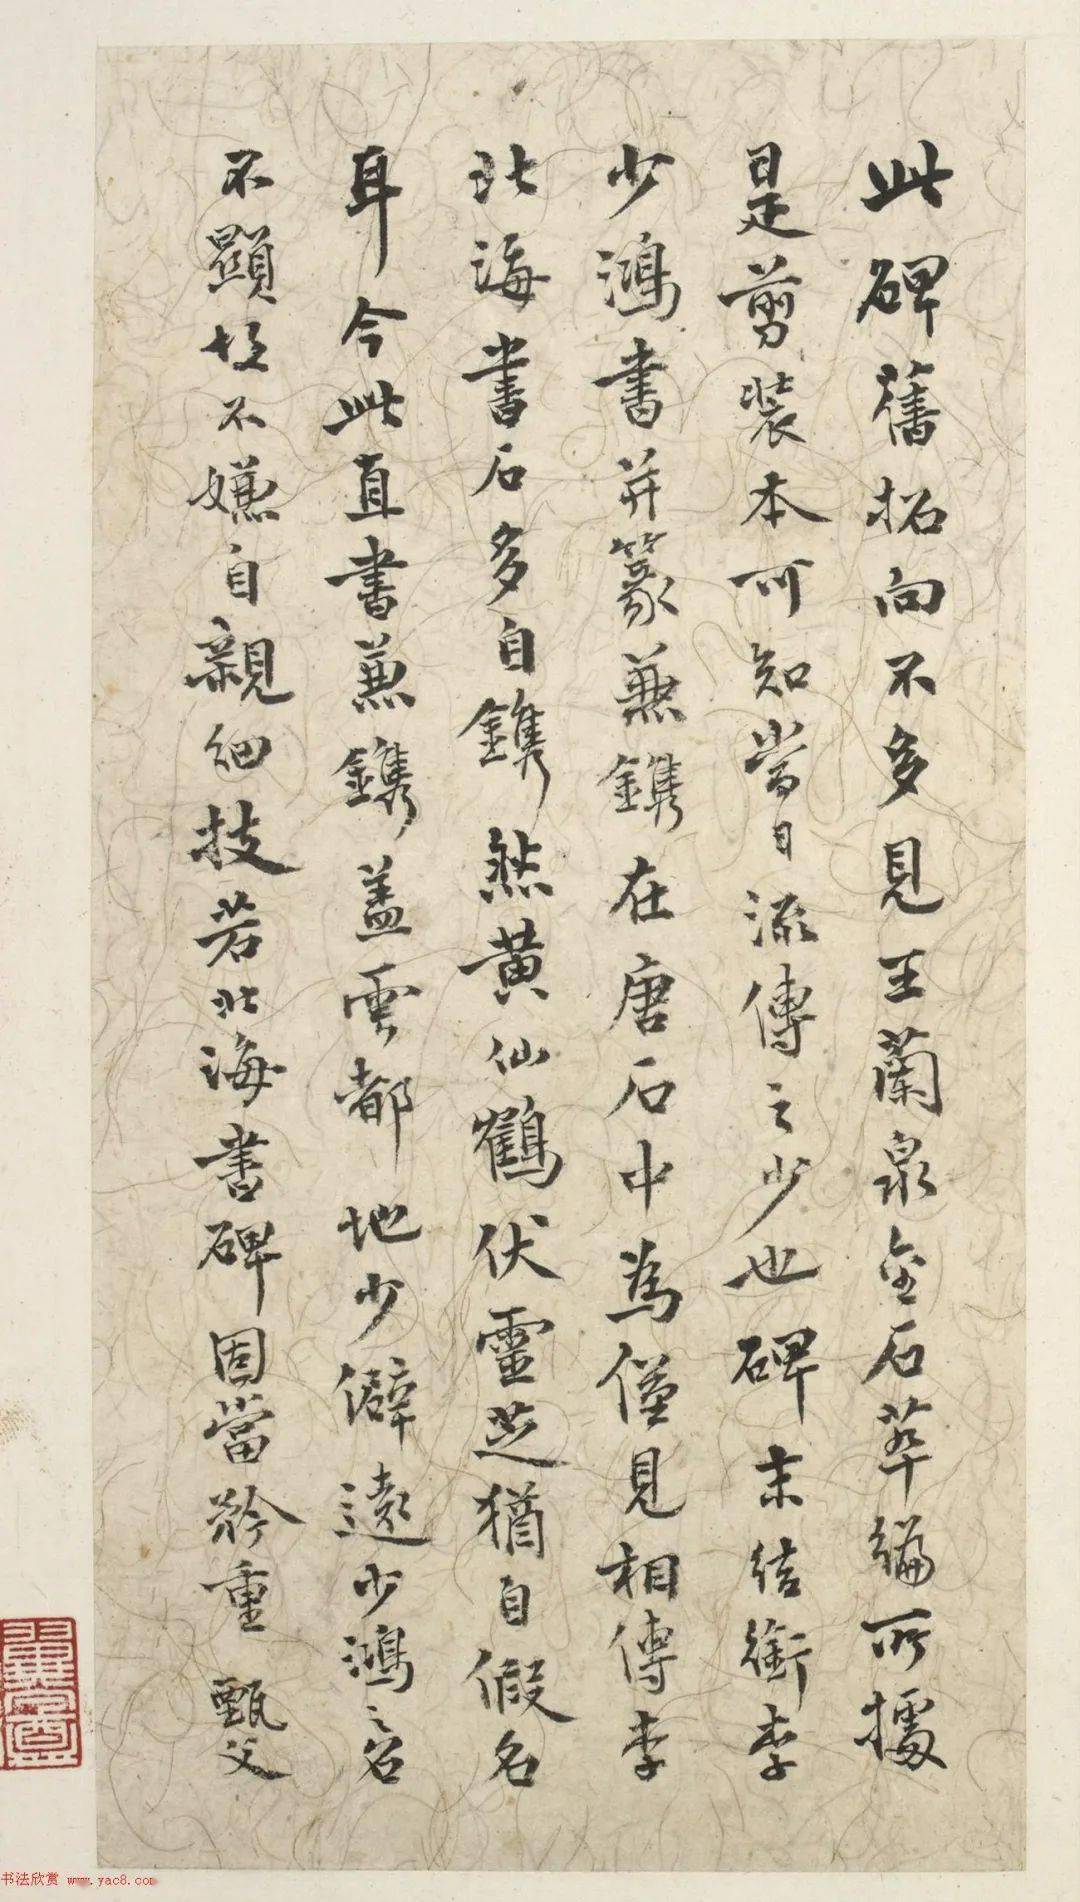 此碑舊拓向不多見王蘭泉金石萃編所據
是剪裝本可知當日流傳之少也碑末結銜李
少鴻書并篆兼鐫在唐石中為僅見相傳李
北海書石多自鐫然黄仙鶴伏靈芝猶自假名
耳今此直書兼鐫蓋雲都地少僻遠少鴻之名
不顯故不嫌自親細技若北海書碑固當矜重 甄父
书法欣赏 www.yac8.com